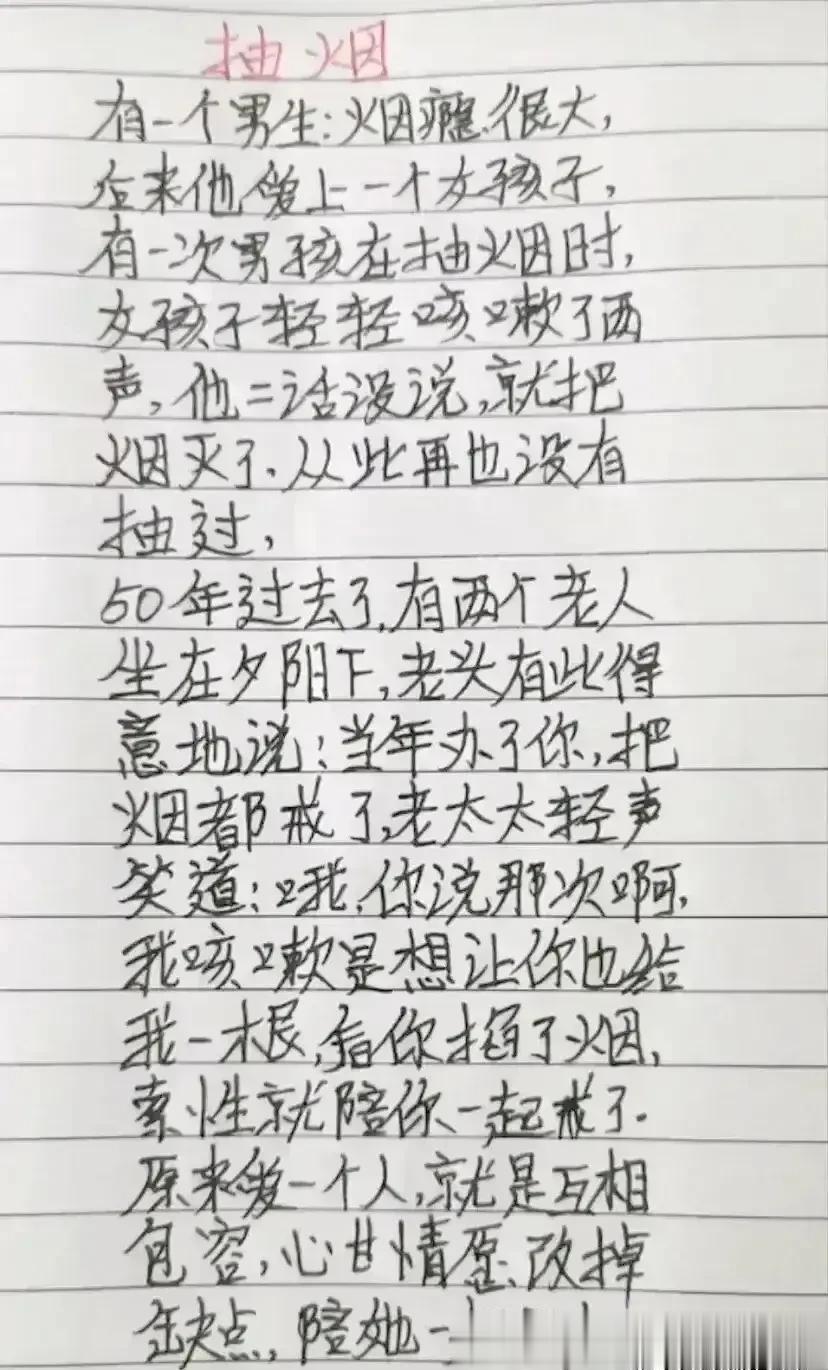 抽烟
有一个男生:烟瘾很大,
后来他爱上一个女孩子,
有一次男孩在抽烟时,
女孩子轻轻咳嗽了两
声,他二话没说,就把
烟灭了.从此再也没有
抽过,
50年过去了,有两个老人
坐在夕阳下,老头有些得
意地说:当年为了你,把
烟都戒了,老太太轻声
笑道:哦,你说那次啊,
我咳嗽是想让你也给
我一根,看你掐了烟,
索性就陪你一起戒了.
原来爱一个人,就是互相
包容,心甘情愿,改掉
缺点,陪她一